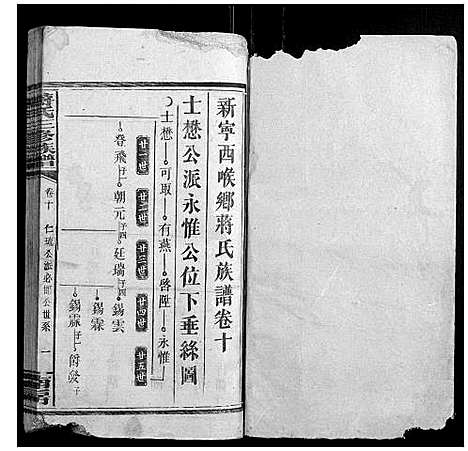 新寧西喉鄉蔣氏族譜卷十
士懋公派永惟公位下垂絲圖
士懋 可取 有燕 啓陞 永惟
廿一世 廿二世 廿三世 廿四世 廿五世
登飛子一 朝元子四 廷瑞子四 錫雲
錫霖
錫霖子一
卷十 仁 公派必 公世系 一